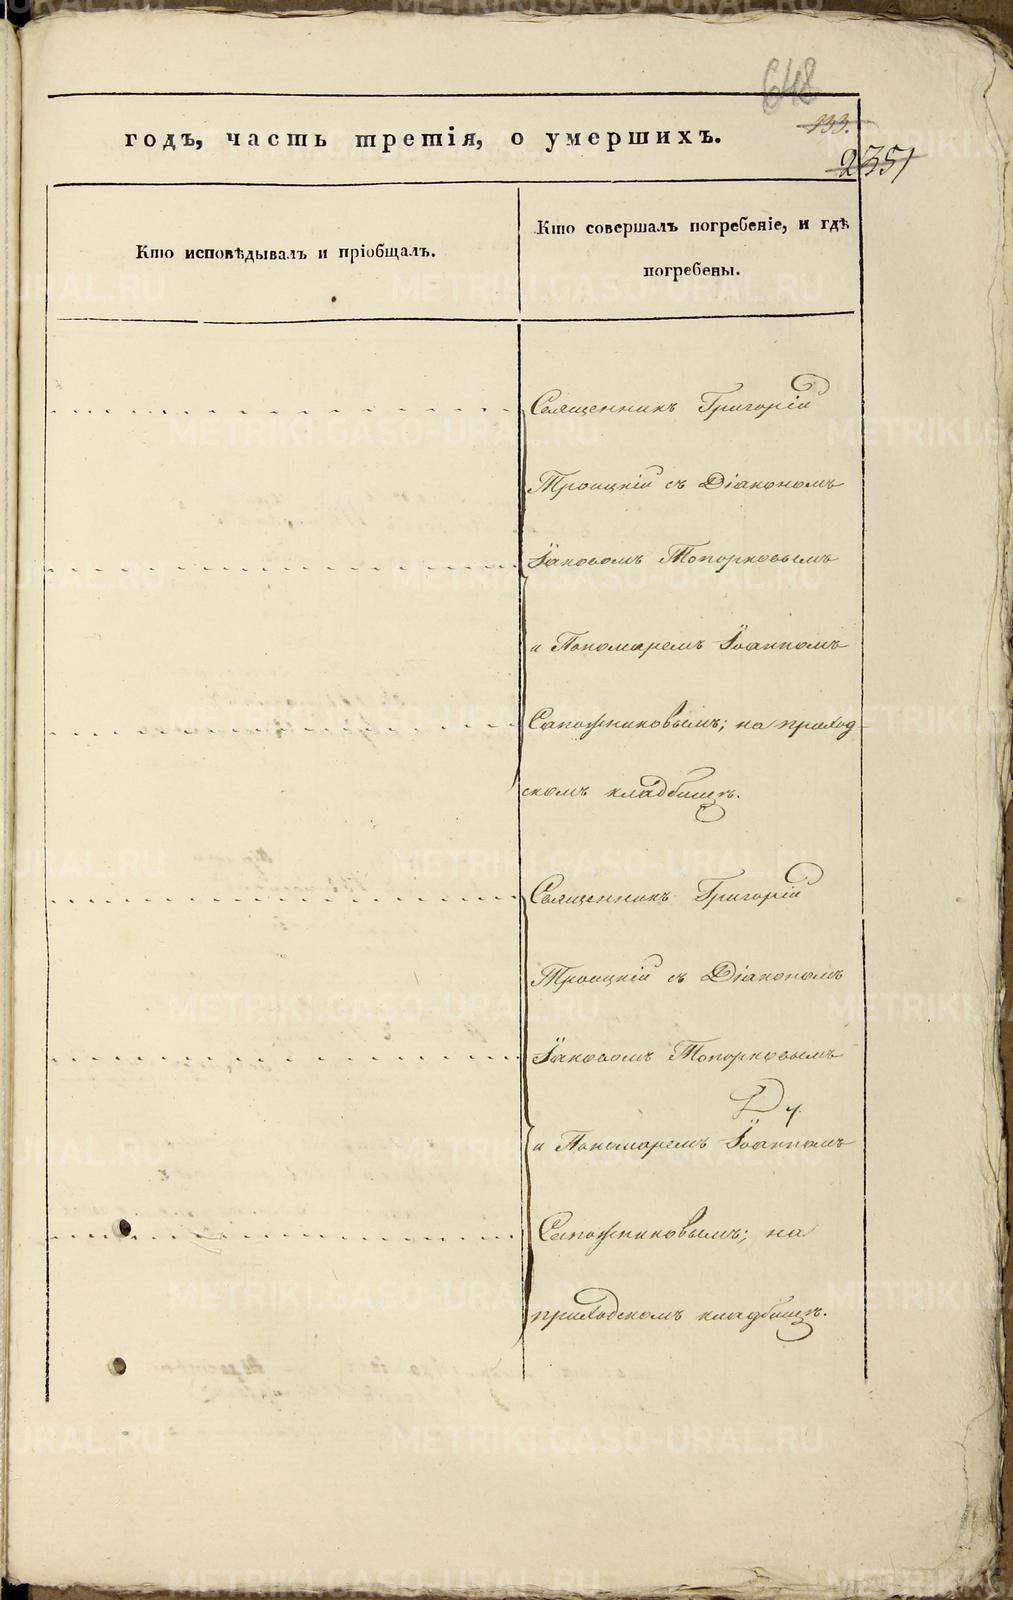 648
133.
2351
годъ, часть третія, о умершихъ.
Кто исповѣдывалъ и пріобщалъ.
Кто совершалъ погребеніе, и гдѣ
погребены.
Священникъ Григорій
Троицкій съ Діакономъ
Іаковомъ Топорковымъ
и Пономаремъ Іоанномъ
Сапожниковымъ; на приход-
скомъ кладбищѣ.
Священникъ Григорій
Троицкій съ Діакономъ
Іаковомъ Топорковымъ
и Пономаремъ Іоанномъ
Сапожниковымъ; на
приходскомъ кладбищѣ.
METRIKI.GASO-URAL.RU